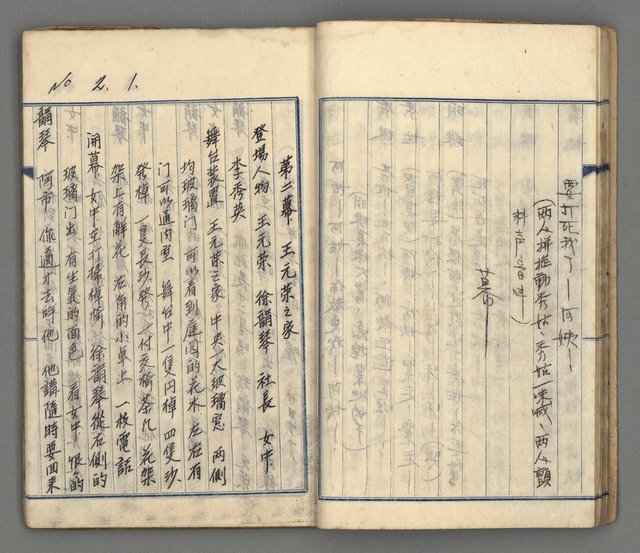 要打死我了－阿娘－
（兩人拼推動秀姑、秀姑一味喊、兩人顫
幕
No 2. 1.
第二幕　王元榮之家
登場人物　王元榮　徐韻琴　社長　女中
李秀英
舞台裝置　王元榮之家　中央一大玻璃窓　兩側
均玻璃門　可以看到庭園的花木左右有
門可以通内室　舞台中一隻円棹　四隻沙
發棹　一隻長沙發　一付交椅茶几　花架
架上有鮮花　左角的小卓上　一枝電話
開幕　女中在打掃棹椅　徐韻琴從右側的
玻璃門出　有生氣的面色　看女中　恨々的
韻琴　阿市　你適才去叫他　他講隨時要回来